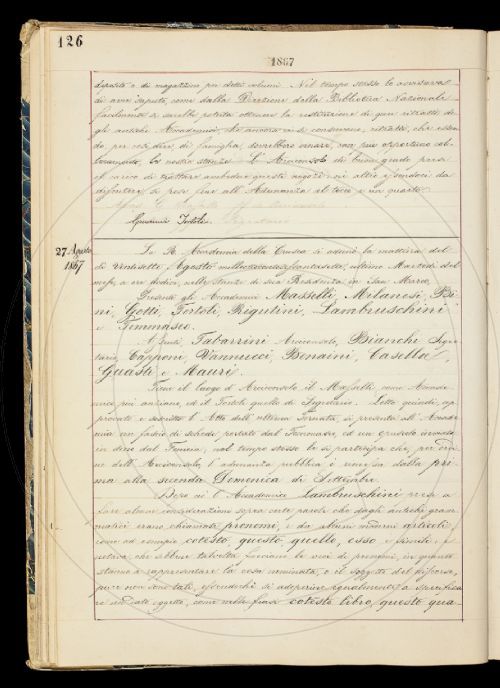 126
1867
deposito o di magazzino per detti volumi. Nel tempo stesso lo avvisava
di aver saputo, come dalla Direzione della Biblioteca Nazionale
facilmente si sarebbe potuta ottenere la restituzione di quei ritratti de
gli antichi Accademici, che ancora ivi si conservano, ritratti, che essen
do, per così dire, di famiglia, dovrebbero ornare, con più opportuno col
locamento, le nostre stanze. L'Arciconsolo di buon grado prese
l'incarico di trattare ambedue questi negozi: nè altro essendoci da
discutere, si pose fine all'Adunanza al tocco e un quarto.
Giovanni Tortoli
27 Agosto
1867
La R. Accademia della Crusca si adunò la mattina del
dì Ventisette Agosto milleottocentosessantasette, ultimo Martedì del
mese, a ore undici, nelle stanze di sua Residenza in San Marco.
Presenti gli Accademici Masselli, Milanesi, Bi
ni, Gotti, Tortoli, Rigutini, Lambruschini
e Tommaseo.
Assenti Tabarrini Arciconsolo, Bianchi Segre
tario, Capponi, Vannucci, Bonaini, Casella,
Guasti e Mauri.
Tiene il luogo d'Arciconsolo il Masselli, come Accade
mico più anziano, ed il Tortoli quello di Segretario. Letto quindi, ap
provato e sottoscritto l'Atto dell'ultima Tornata, si presenta all'Acca
mia un fascio di schede portate dal Tommaseo, ed un opuscolo
in dono dal nel tempo stesso le si partecipa che, per
ne dell'Arciconsolo, l'adunanza pubblica è rimessa dalla pri
ma alla seconda Domenica di Settembre.
Dopo ciò l'Accademico Lambruschini prese a
fare alcune considerazioni sopra certe parole che dagli antichi gram
matici erano chiamate pronomi, e da alcuni moderni articoli,
come ad esempio cotesto, questo, quello, esso e simili: e
che ebbene talvolta facciano le veci di pronomi, in quanto
stanno a rappresentare la cosa nominata, o il soggetto del discorso,
pure non sono tali, essendochè si adoprino egualmente a specifica
re un dato oggetto, come nella frase cotesto libro, questo qua